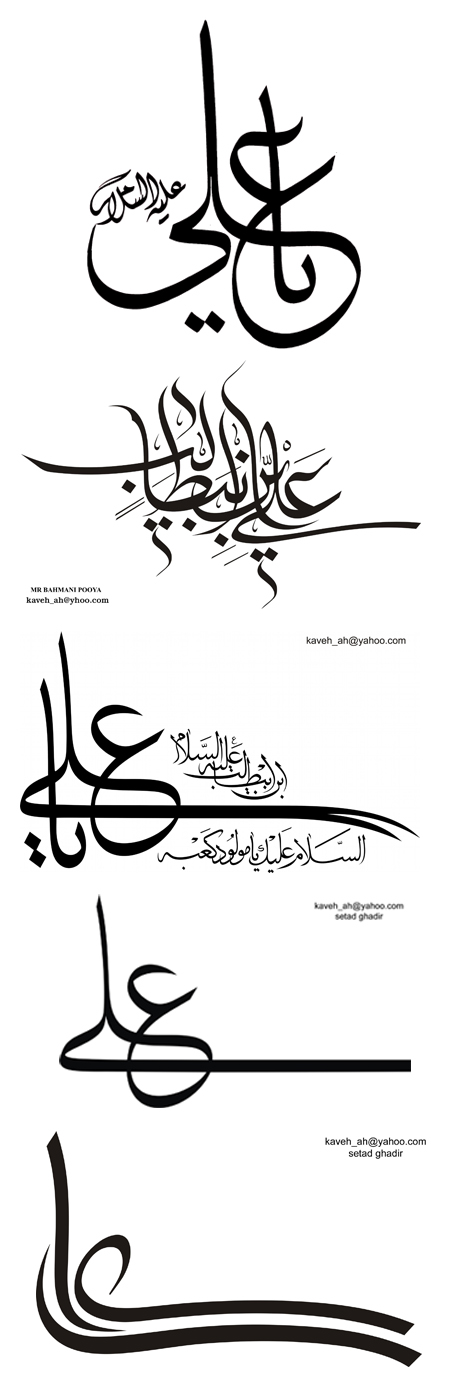 يا علي
عليه السلام
علي بن ابيطالب
MR BAHMANI POOYA
kaveh_ah@yhoo.com
kaveh_ah@yahoo.com
يا علی
ابن ابیطالب علیه السَّلام
السَّلام عَلیكَ یا مولود کَعبه
kaveh_ah@yahoo.com
setad ghadir
علی
kaveh_ah@yahoo.com
setad ghadir